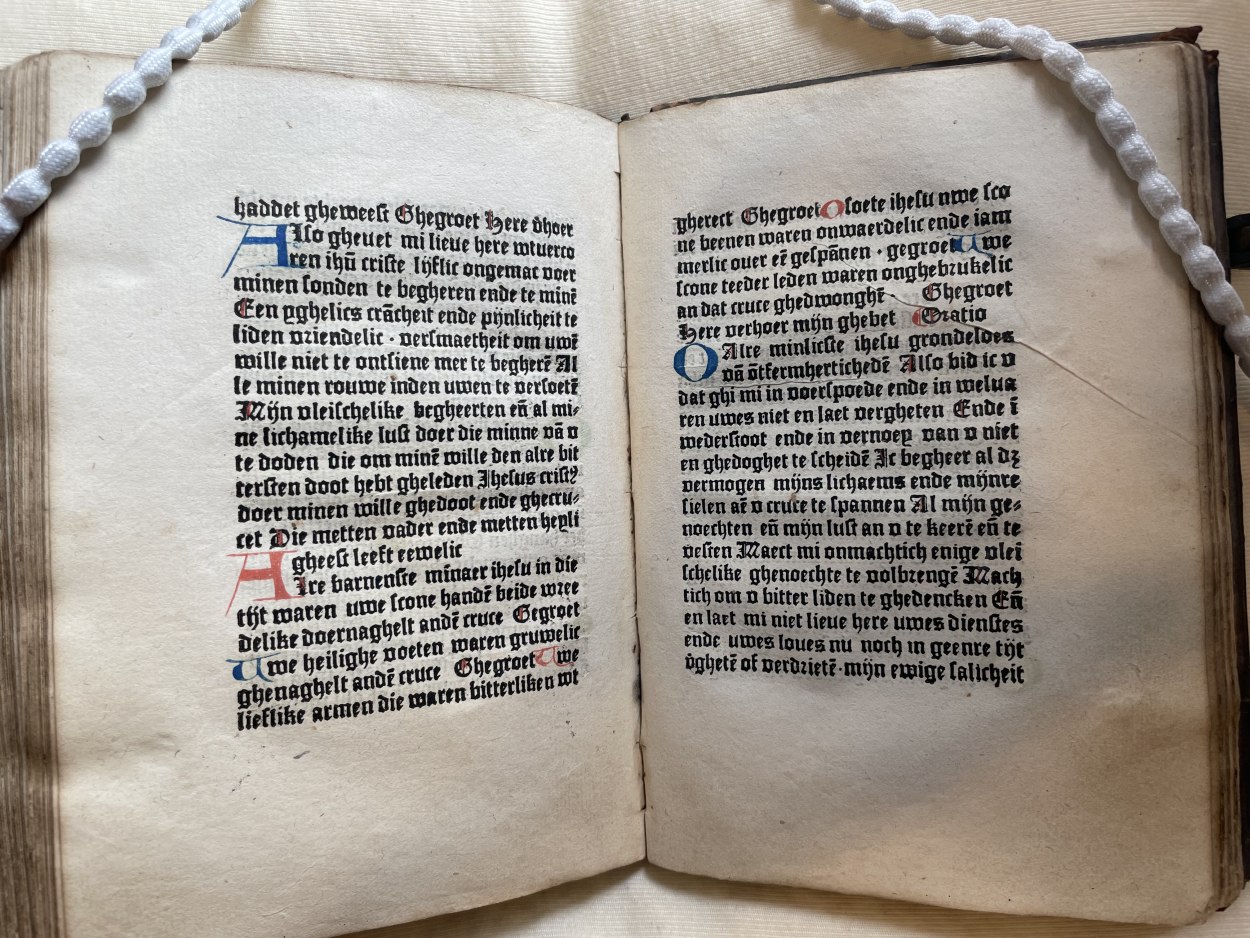 haddet gheweest Ghegroet Here v̄hoer
Also gheuet mi lieue here wtuerco
ren ihū criste lijflic ongemac voer
minen sonden te begheren ende te minē
Een yghelics crācheit ende pijnlicheit te
liden vriendelic · versmaetheit om uwē
wille niet te ontsiene mer te begherē Al
le minen rouwe inden uwen te versoetē
Mijn vleischelike begheerten eñ al mi⸗
ne lichamelike lust doer die minne vā v
te doden die om minē wille den alre bit
tersten doot hebt gheleden Ihesus cristꝰ
doer minen wille ghedoot ende ghecru⸗
cet Die metten vader ende metten heyli
gheest leeft eewelic
Alre barnenste minaer ihesu in die
tijt waren uwe scone handē beide wree
delike doernaghelt andē cruce Gegroet
Uwe heilighe voeten waren gruwelic
ghenaghelt andē cruce Ghegroet Uwe
lieflike armen die waren bitterliken wt
gherect Ghegroet O soete ihesu uwe sco
ne beenen waren onwaerdelic ende iam
merlic ouer eē gespānen · gegroet Uwe
scone teeder leden waren onghebrukelic
an dat cruce ghedwonghē · Ghegroet
Here verhoer mijn ghebet Oratio
O Alre minlicste ihesu grondeldes
vā ōtfermhertichedē Also bid ic v
dat ghi mi in voerspoede ende in welua
ren uwes niet en laet vergheten Ende ī
wederstoot ende in vernoey van v niet
en ghedoghet te scheidē Ic begheer al dꝫ
vermogen mijns lichaems ende mijnre
sielen aē v cruce te spannen Al mijn ge⸗
noechten eñ mijn lust an v te keerē eñ te
vesten Maect mi onmachtich enige vlei
schelike ghenoechte te volbrengē Mach
tich om v bitter liden te ghedencken Eñ
en laet mi niet lieue here uwes dienstes
ende uwes loues nu noch in geenre tijt
v̄ghetē of verdrietē · mijn ewige salicheit